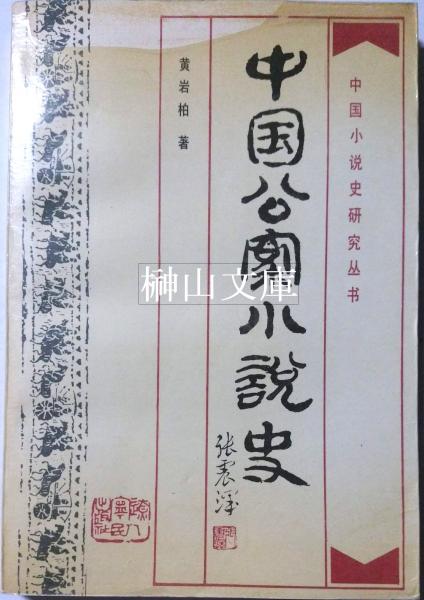 中国小说史研究丛书
中国公案小說史
张震泽
黄岩柏 著
辽宁人民出版社
榊山文庫